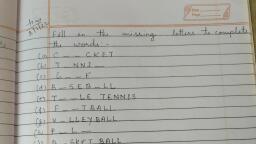 Fill in the missing letters to complete
the words:-
(a) C _ _ CKET
(b) T _ NNI _
(c) G _ _ F
(d) B _ SEB _ LL
(e) T _ _ LE TENNIS
(f) F _ _ TBALL
(g) V _ LLEYBALL
(h) P _ L _
B _ SKET BALL